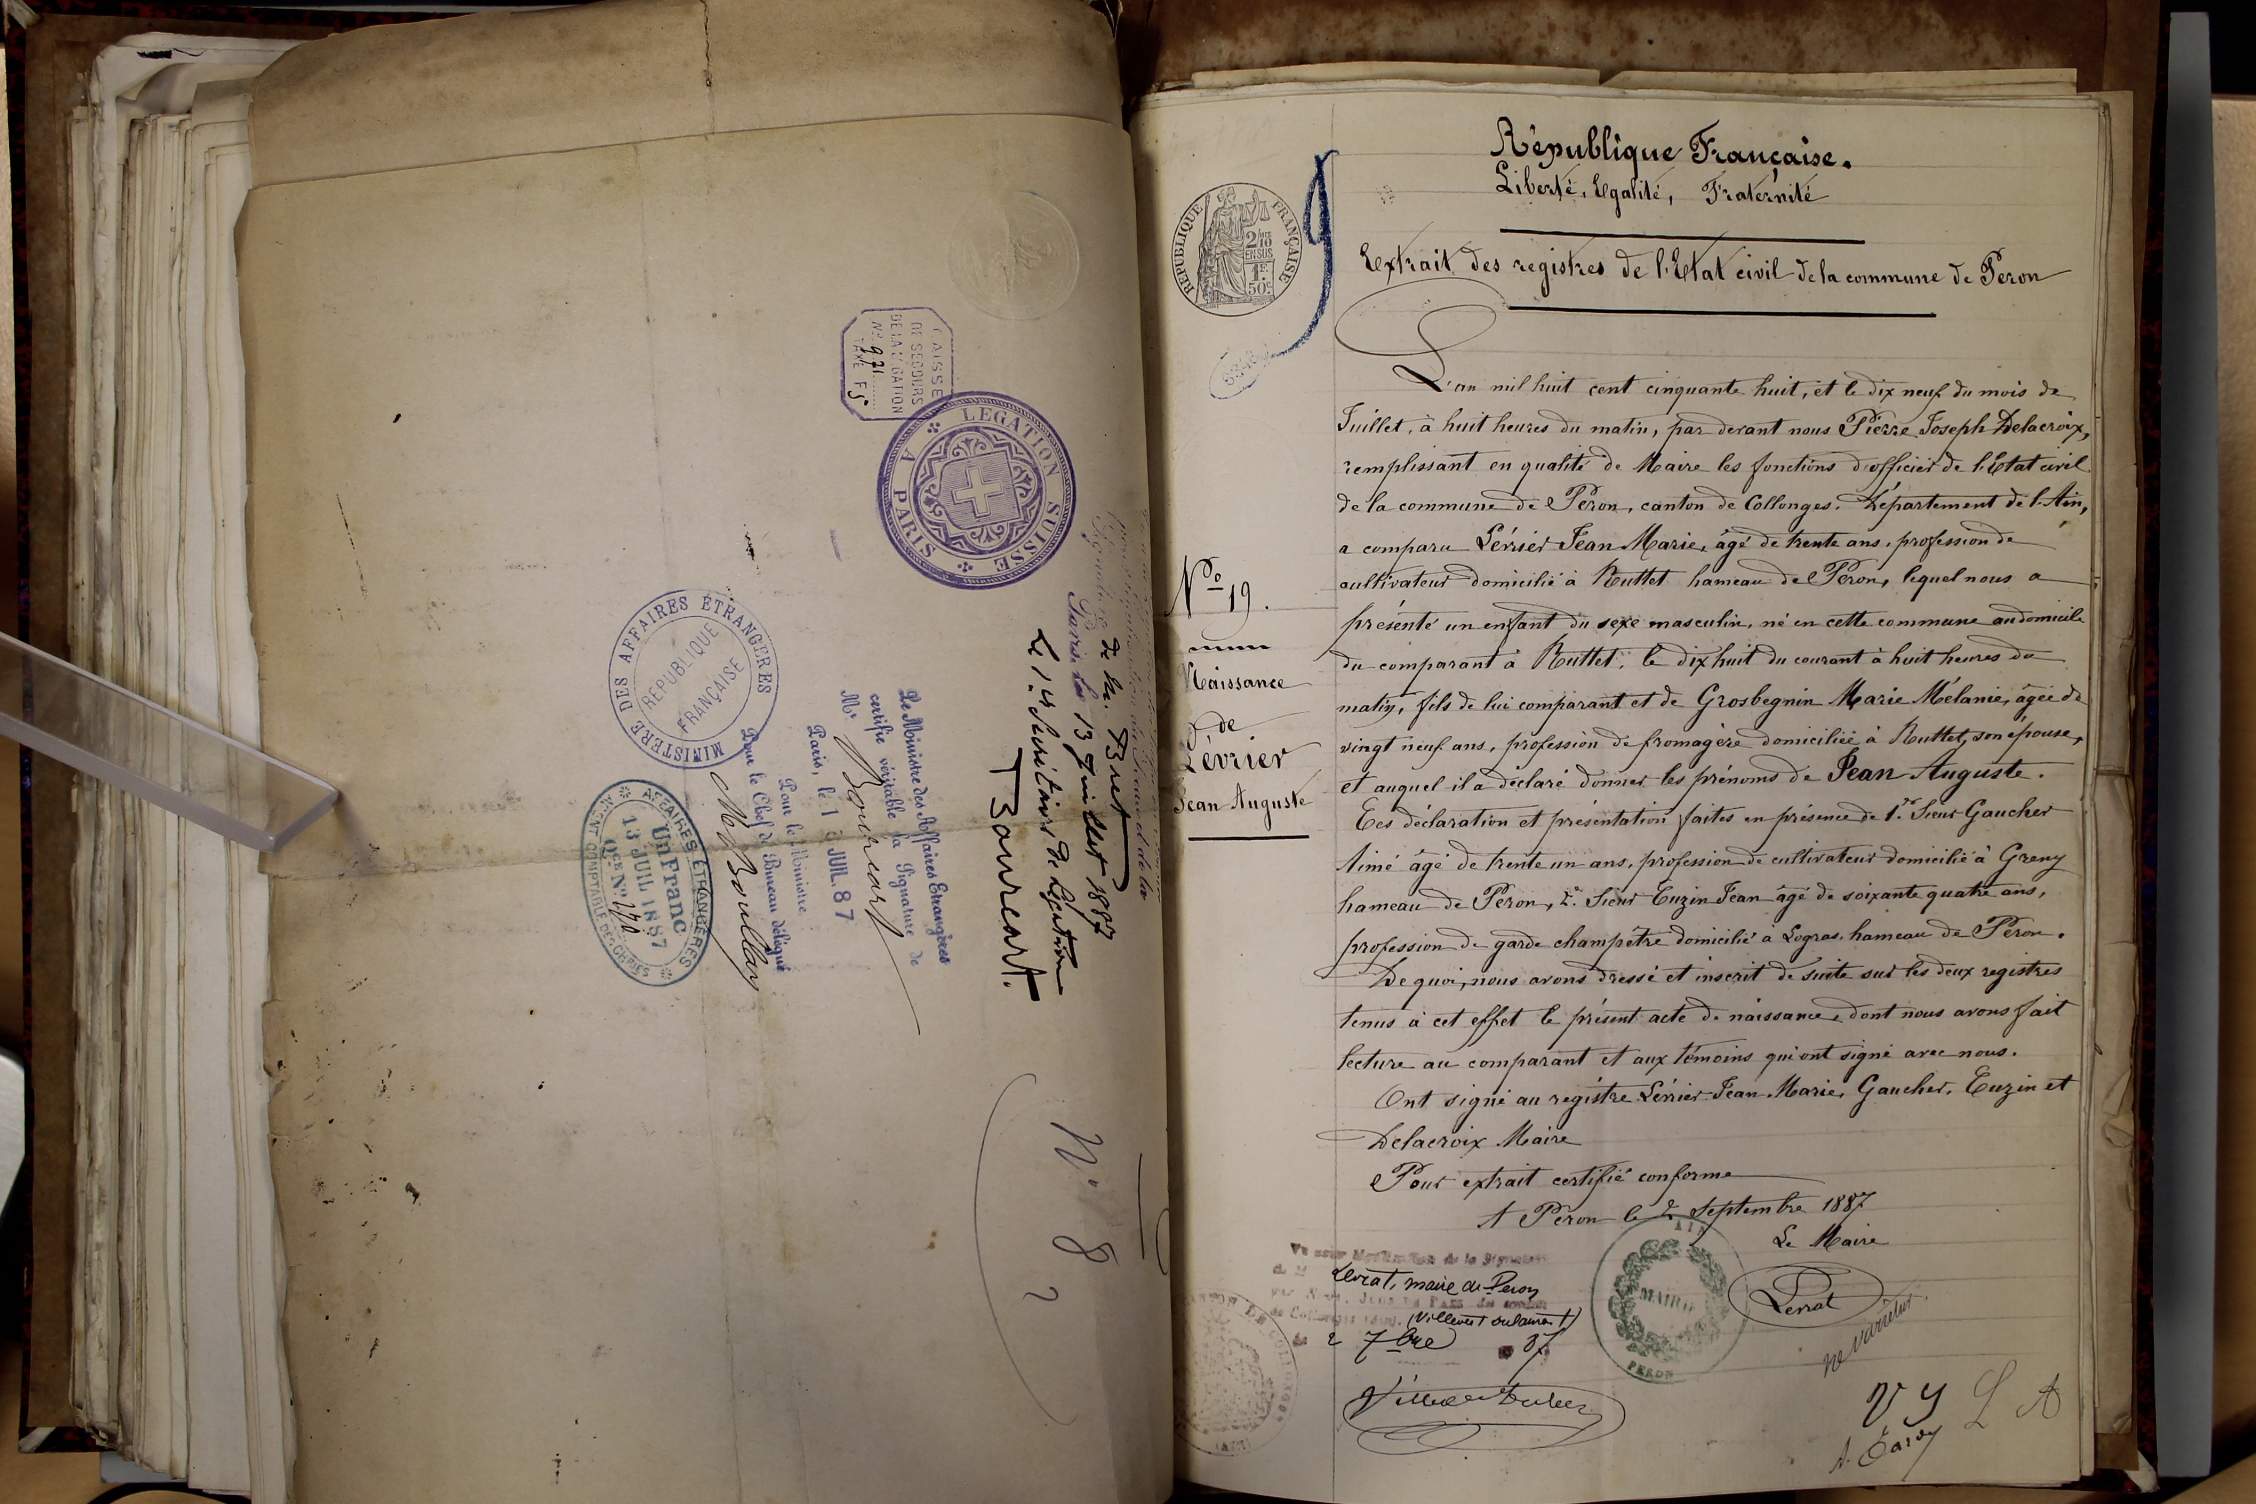 CAISSE
DE SECOURS
DE LA LÉGATION
No 971
TAXE F 5
LEGATION SUISSE
A PARIS
de Mr. Bret
Paris, le 13 Juillet 1887
Le 1er Secrétaire de Légation
Bourcart.
MINISTERE DES AFFAIRES ETRANGERES
REPUBLIQUE
FRANÇAISE
Le Ministre des Affaires Etrangères
certifie véritable la Signature de
Mr Bourcart
Paris, le 13 JUIL. 87
Pour le Ministre
Pour le Chef de Bureau délégué
AFFAIRES ETRANGERES
Un Franc
13 JUIL 1887
AGENT COMPTABLE DES CHIES
No 8
REPUBLIQUE FRANÇAISE
2/10
EN SUS
1F.
50c
9
République Française.
Liberté, Egalité, Fraternité
Extrait des registres de l'Etat civil de la commune de Péron
L'an mil huit cent cinquante huit, et le dix neuf du mois de
Juillet, à huit heures du matin, par devant nous Pierre Joseph Delacroix,
remplissant en qualité de Maire les fonctions d'officier de l'Etat civil
de la commune de Péron, canton de Collonges, Département de l'Ain,
a comparu Lévrier Jean Marie, âgé de trente ans, profession de
cultivateur domicilié à Ruttet hameau de Péron, lequel nous a
présenté un enfant du sexe masculin, né en cette commune au domicile
du comparant à Ruttet, le dix huit du courant à huit heures du
matin, fils de lui comparant et de Grosbegnin Marie Mélanie, âgée de
vingt neuf ans, profession de fromagère domiciliée à Ruttet, son épouse,
et auquel il a déclaré donner les prénoms de Jean Auguste.
Ces déclaration et présentation faites en présence de 1º Sieur Gaucher
Aimé âgé de trente un ans, profession de cultivateur domicilié à Greny
hameau de Péron, 2º. Sieur Tuzin Jean âgé de soixante quatre ans,
profession de garde champêtre domicilié à Logras, hameau de Péron.
De quoi, nous avons dressé et inscrit de suite sur les deux registres
tenus à cet effet le présent acte de naissance, dont nous avons fait
lecture au comparant et aux témoins qui ont signé avec nous.
Ont signé au registre Lévrier Jean Marie, Gaucher, Tuzin et
Delacroix Maire
Pour extrait certifié conforme
A Péron le 2 Septembre 1887
Le Maire
No 19.
Naissance
de
Lévrier
Jean Auguste
maire de Peron
2 7bre 87
AIN
MAIRIE
PERON
ne varietur